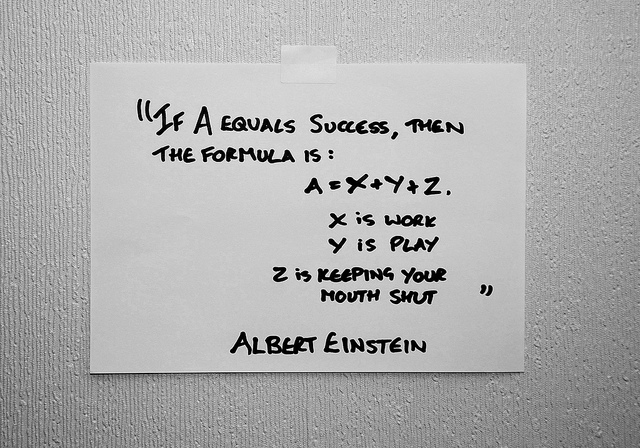 "If A EQUALS SUCCESS, THEN
THE FORMULA IS:
A = X + Y + Z.
X is WORK
Y is PLAY
Z is KEEPING YOUR
MOUTH SHUT "
ALBERT EINSTEIN